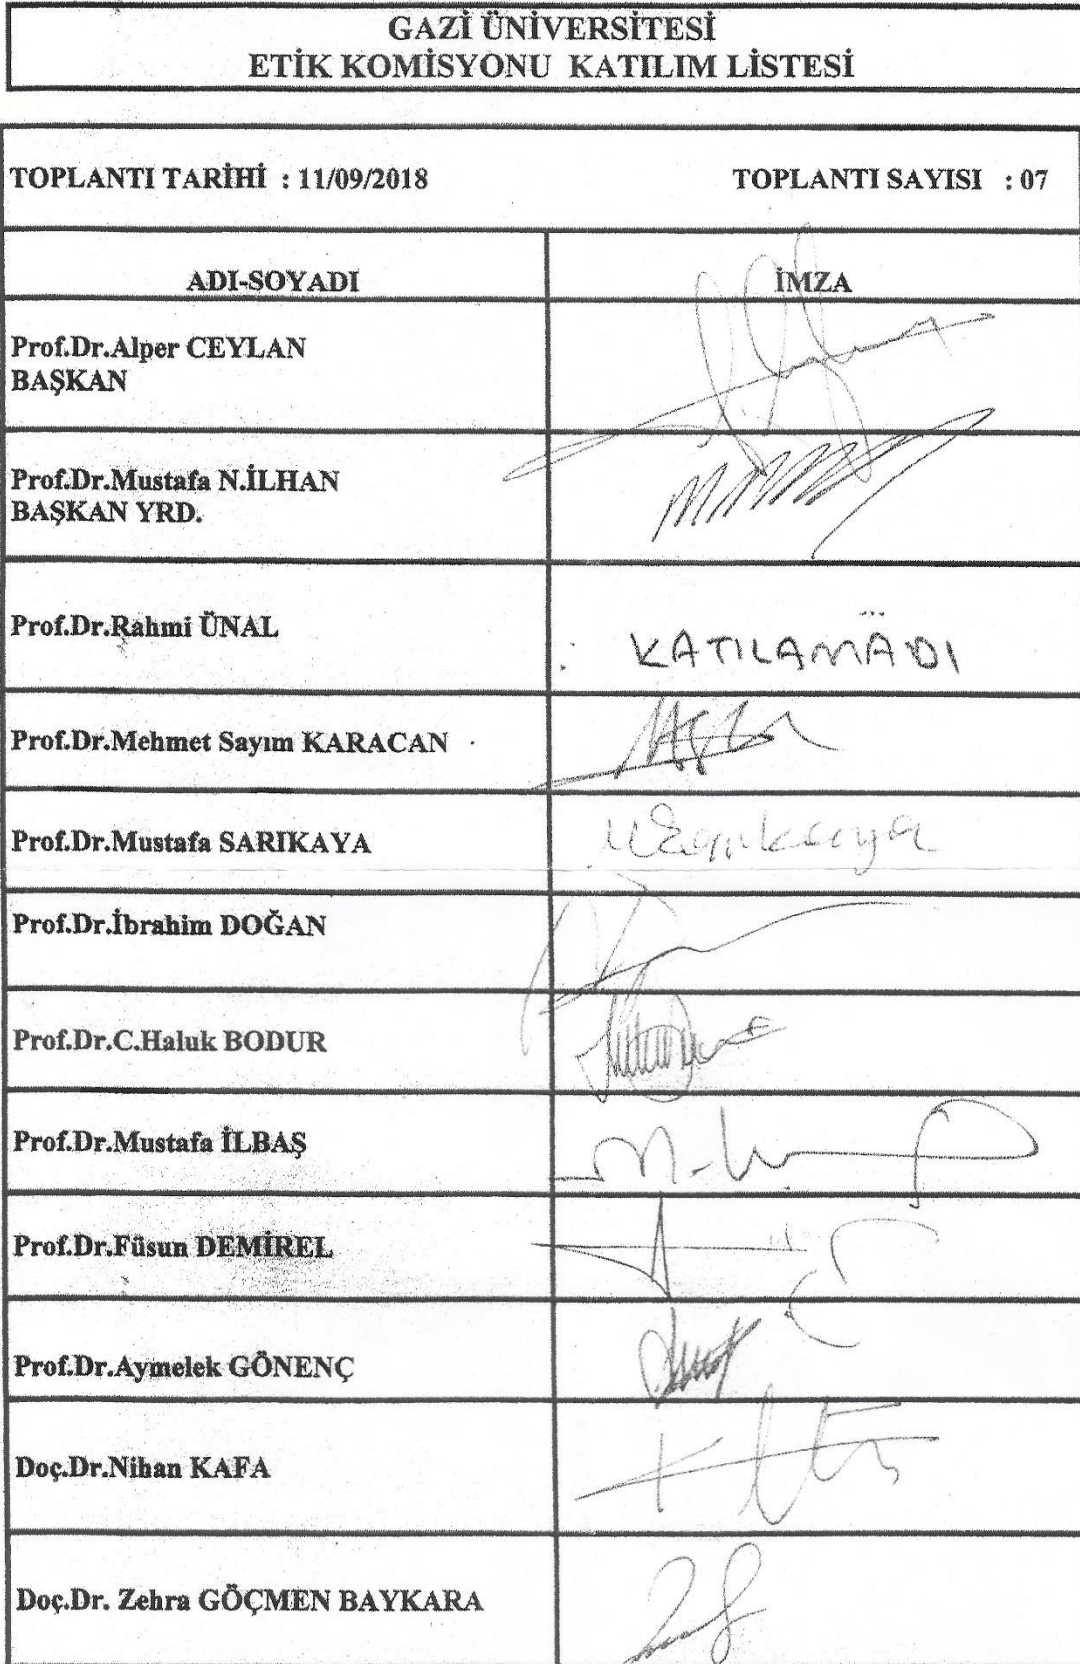 GAZİ ÜNİVERSİTESİ
ETİK KOMİSYONU KATILIM LİSTESİ
TOPLANTI TARİHİ : 11/09/2018 TOPLANTI SAYISI : 07
ADI-SOYADI İMZA
Prof.Dr.Alper CEYLAN
BAŞKAN
Prof.Dr.Mustafa N.İLHAN
BAŞKAN YRD.
Prof.Dr.Rahmi ÜNAL KATILAMADI
Prof.Dr.Mehmet Sayım KARACAN
Prof.Dr.Mustafa SARIKAYA
Prof.Dr.İbrahim DOĞAN
Prof.Dr.C.Haluk BODUR
Prof.Dr.Mustafa İLBAŞ
Prof.Dr.Füsun DEMİREL
Prof.Dr.Aymelek GÖNENÇ
Doç.Dr.Nihan KAFA
Doç.Dr. Zehra GÖÇMEN BAYKARA